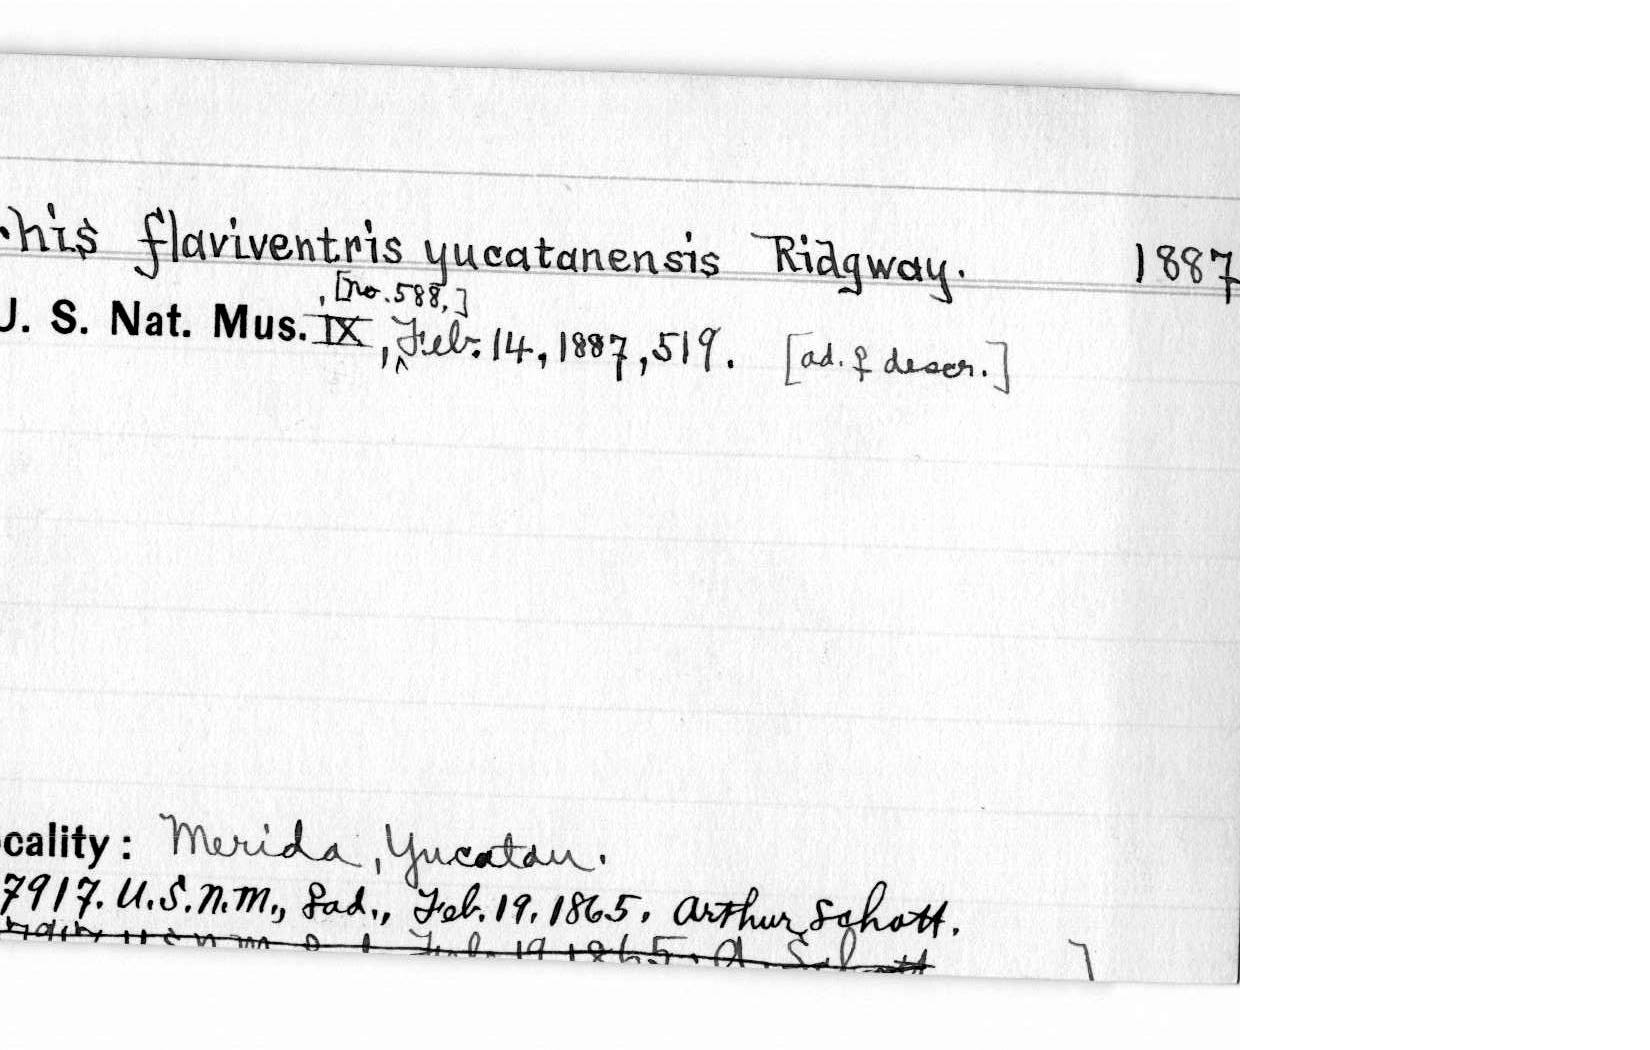 his flaviventris yucatanensis Ridgway. 1887
, [no. 588,]
U. S. Nat. Mus. IX, Feb. 14, 1887, 519. [ad. ♀ descr.]
cality: Merida, Yucatan.
7917. U.S.N.M., ♀ad., Feb. 19, 1865, Arthur Schott.
U S N M ♀ ad Feb 19 1865. A. Schott ]